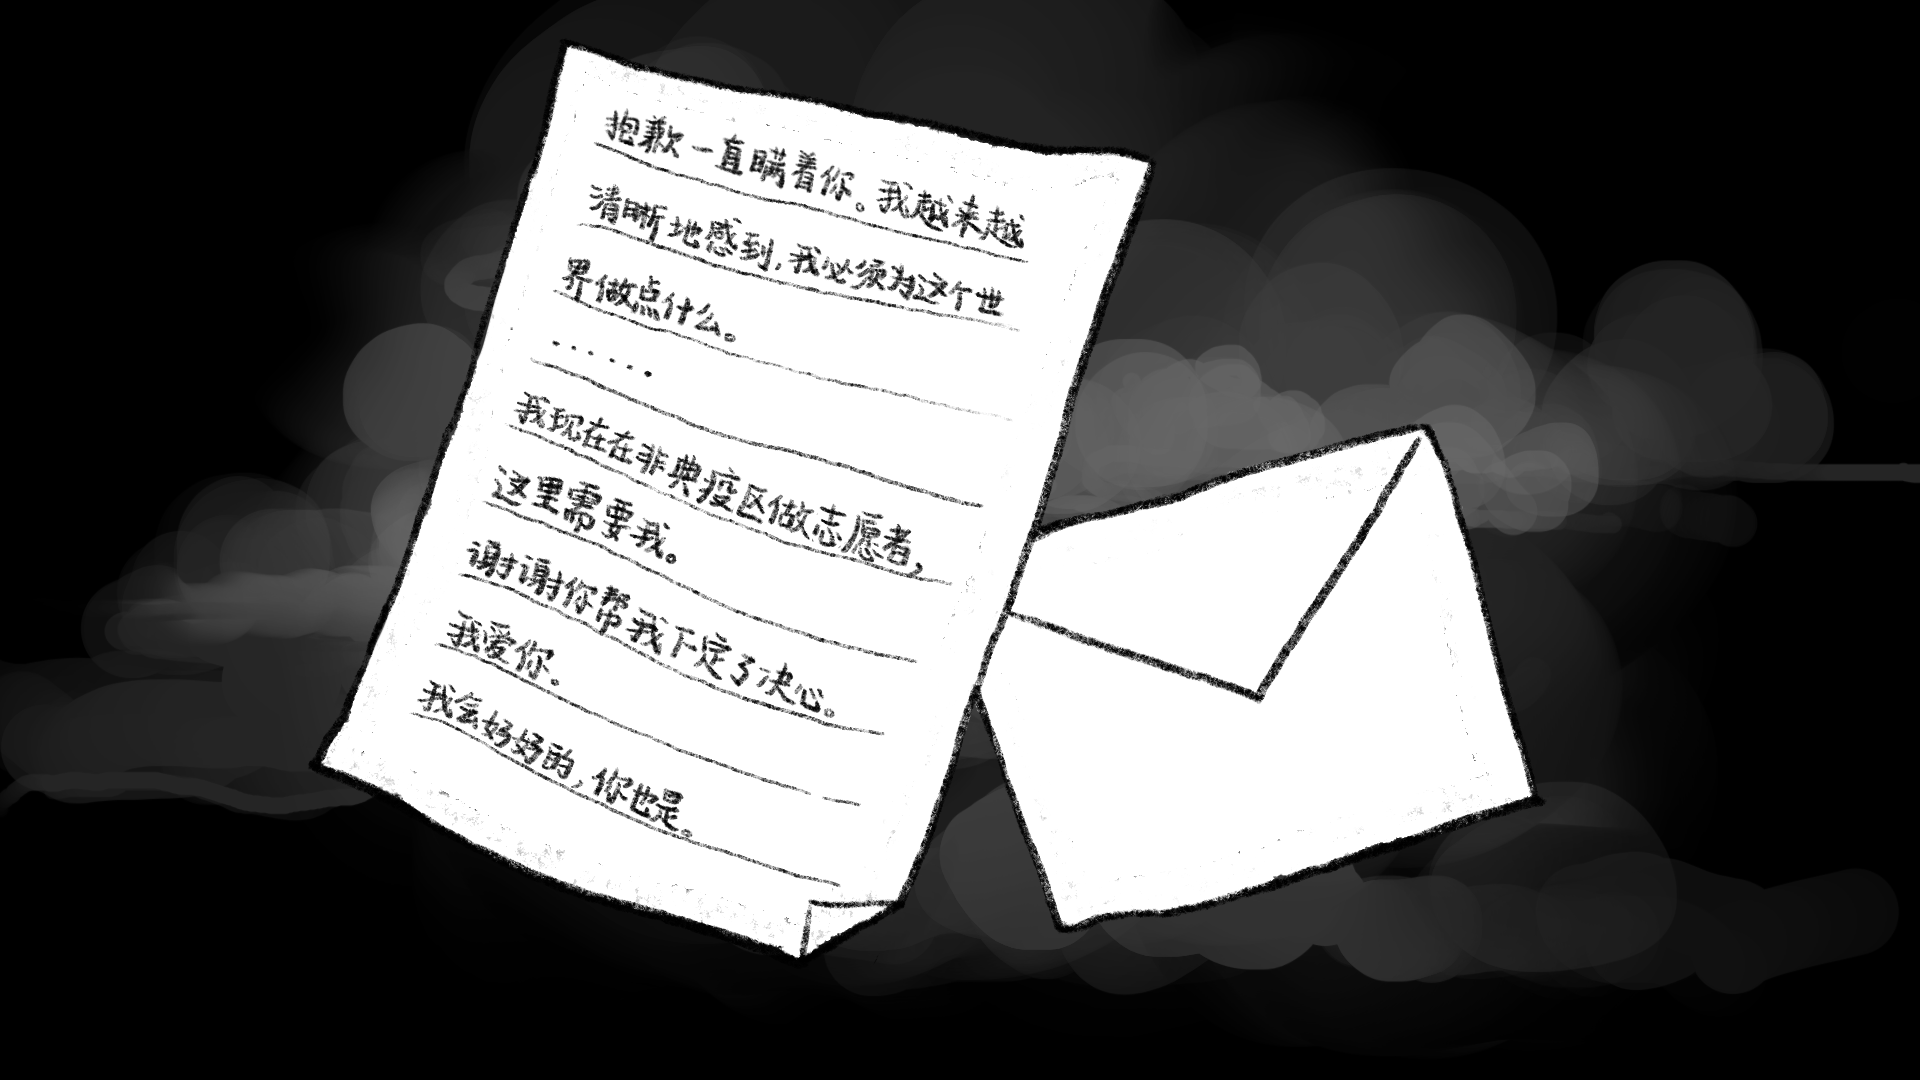 抱歉一直瞒着你。我越来越
清晰地感到,我必须为这个世
界做点什么。
......
我现在在非典疫区做志愿者,
这里需要我。
谢谢你帮我下定了决心。
我爱你.
我会好好的,你也是。